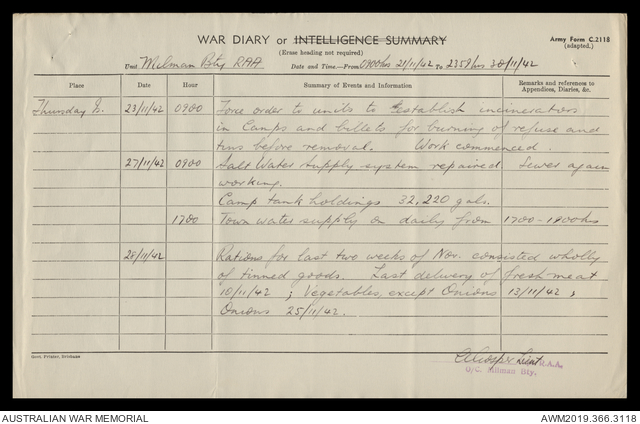 WAR DIARY or INTELLIGENCE SUMMARY
Army Form C.2118
(adapted.)
(Erase heading not required)
Unit Milman Bty RAA Date and Time—From 0900hrs 21/11/42 To 2359hrs 30/11/42
Place Date Hour Summary of Events and Information Remarks and references to Appendices, Diaries, &c.
Thursday Is. 23/11/42 0900 Force order to units to establish incinerators
in Camps and billets for burning of refuse and
tins before removal. Work commenced.
27/11/42 0900 Salt Water supply system repaired. Sewer again
working.
Camp tank holdings 32,220 gals.
1700 Town water supply on daily from 1700-1900hrs
28/11/42 Rations for last two weeks of Nov. consisted wholly
of tinned goods. Last delivery of fresh meat
10/11/42 ; Vegetables, except Onions 13/11/42 ,
Onions 25/11/42.
Govt. Printer, Brisbane
Lieut R.A.A.
O/C. Milman Bty.
AUSTRALIAN WAR MEMORIAL
AWM2019.366.3118